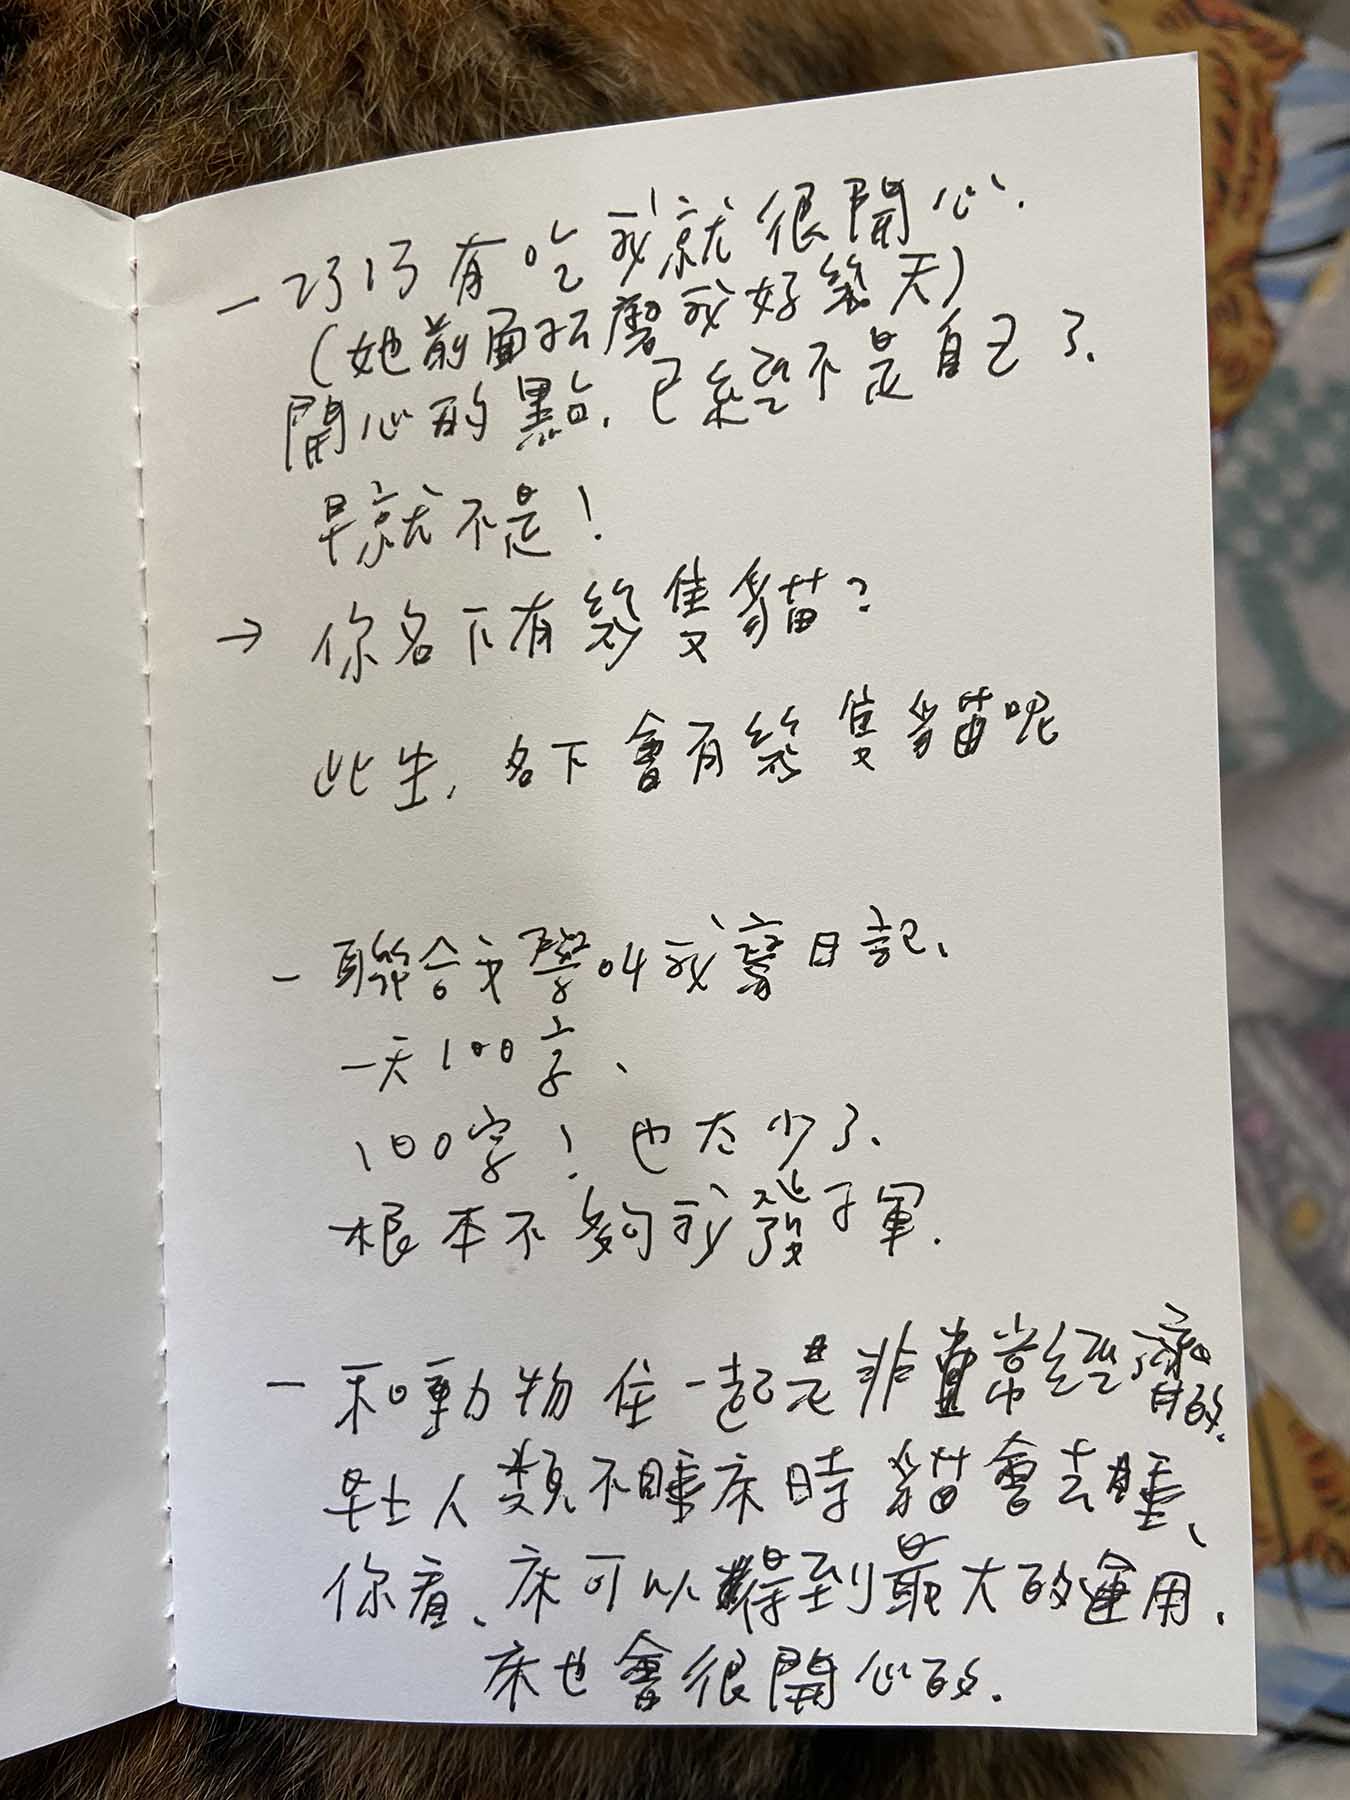 一 巧巧有吃我就很開心.
(她前面折磨我好幾天)
開心的點. 已經不是自己了.
早就不是!
→ 你名下有幾隻貓?
此生. 名下會有幾隻貓呢
一 聯合文學叫我寫日記、
一天100字、
100字! 也太少了、
根本不夠我發揮.
一 和動物住一起是非常經濟的.
在人類不睡床時 貓會去睡、
你看、床可以得到最大的運用.
床也會很開心的.